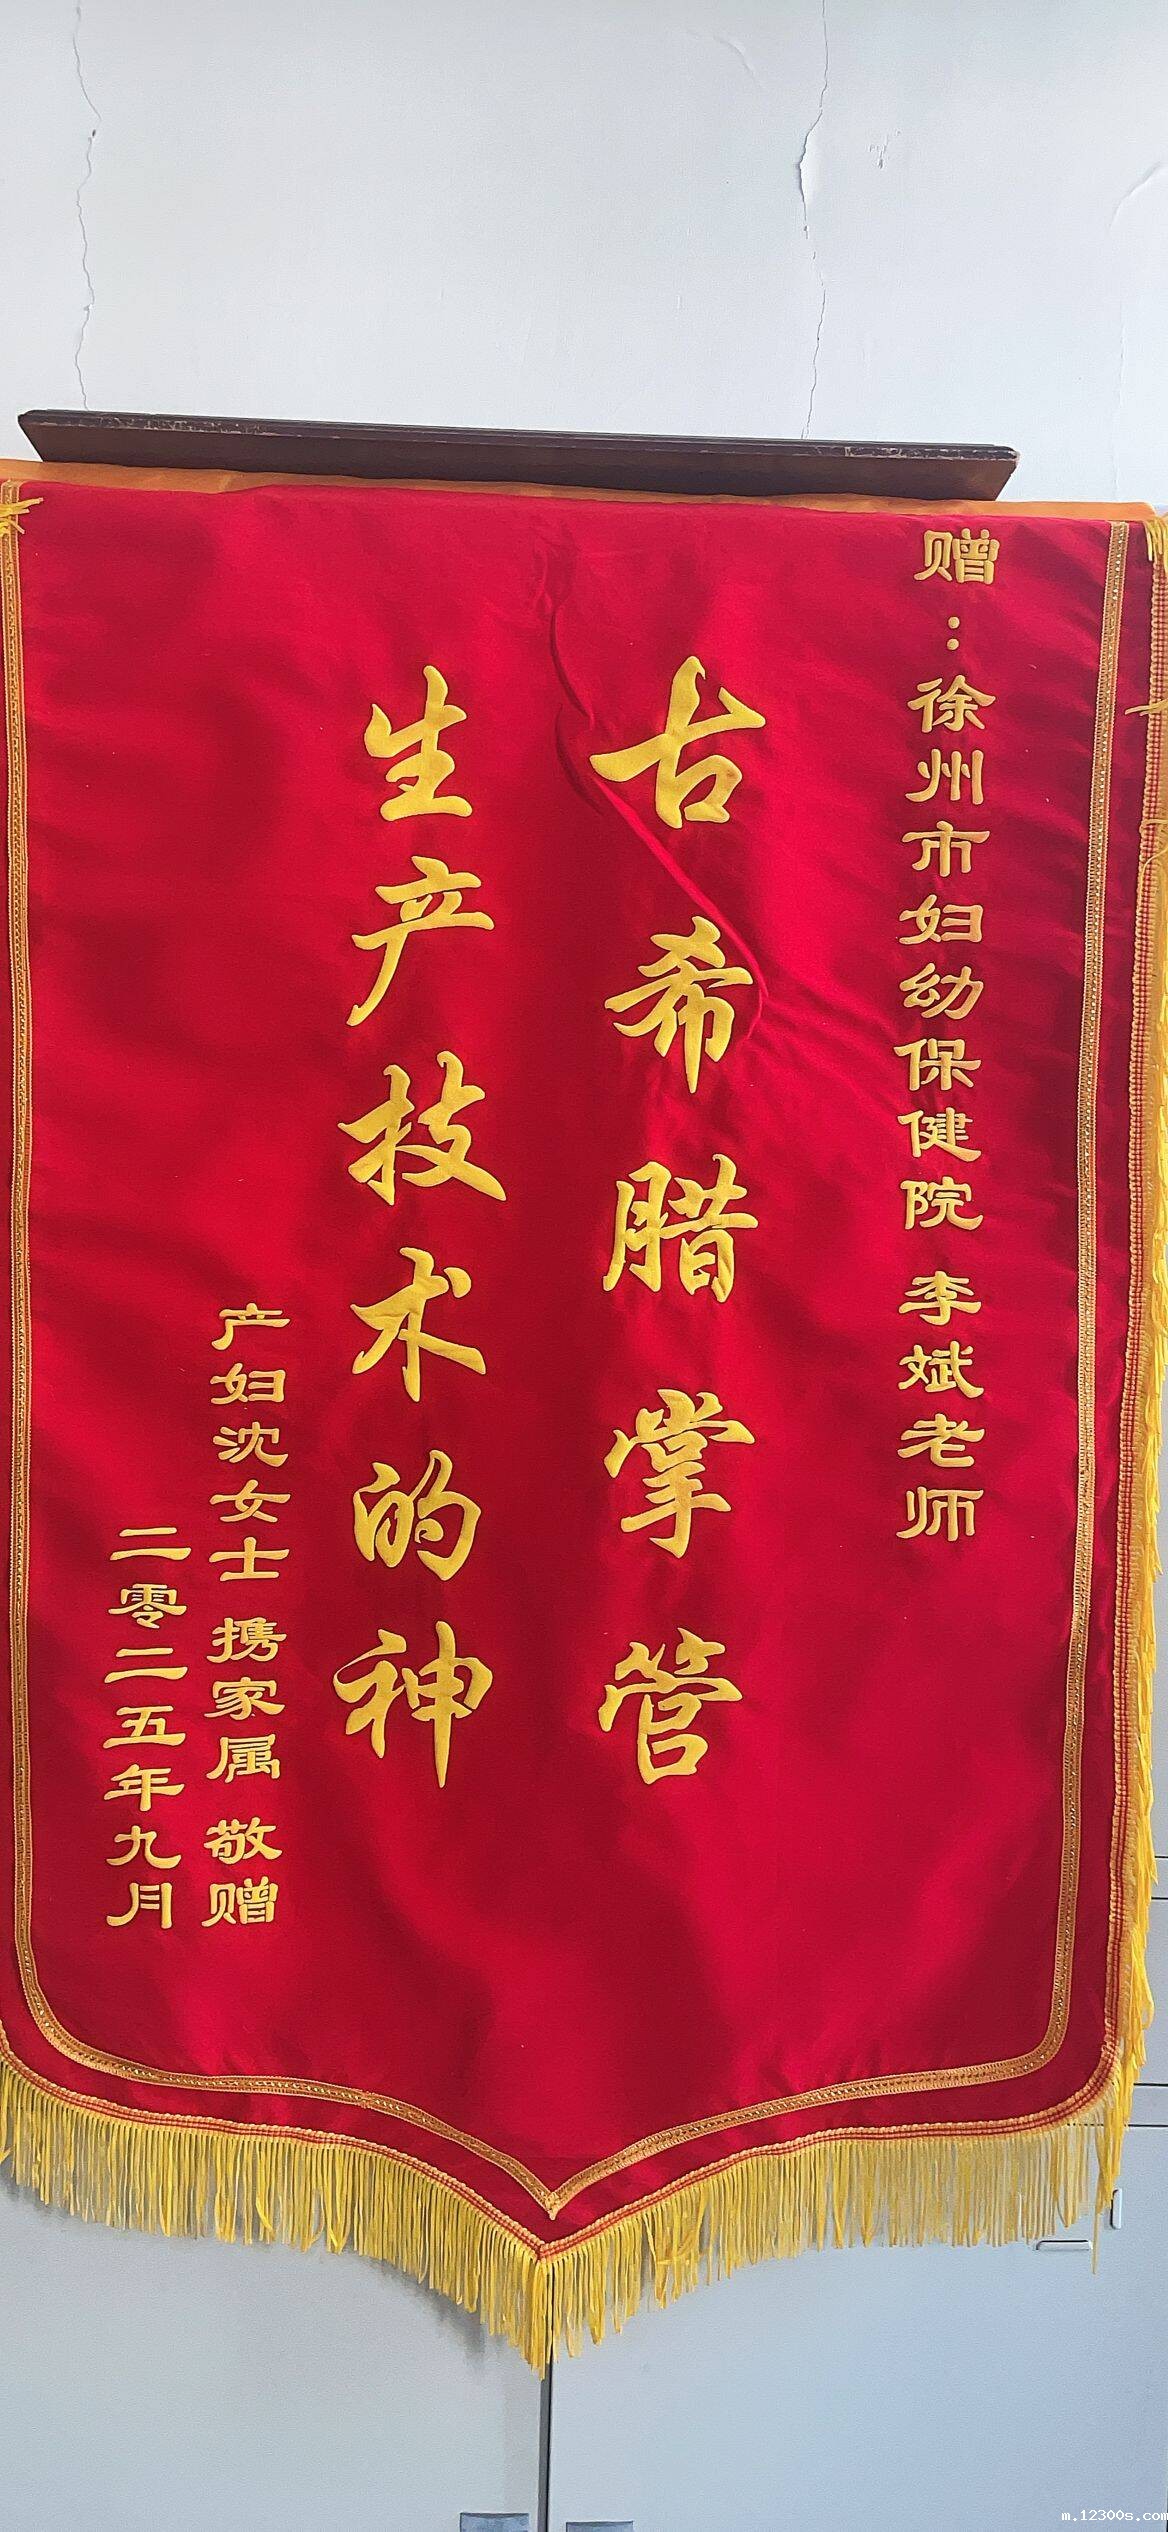 赠：徐州市妇幼保健院 李斌老师
古希腊掌管
生产技术的神
产妇沈女士 携家属 敬赠
二零二五年九月
m.12300s.com